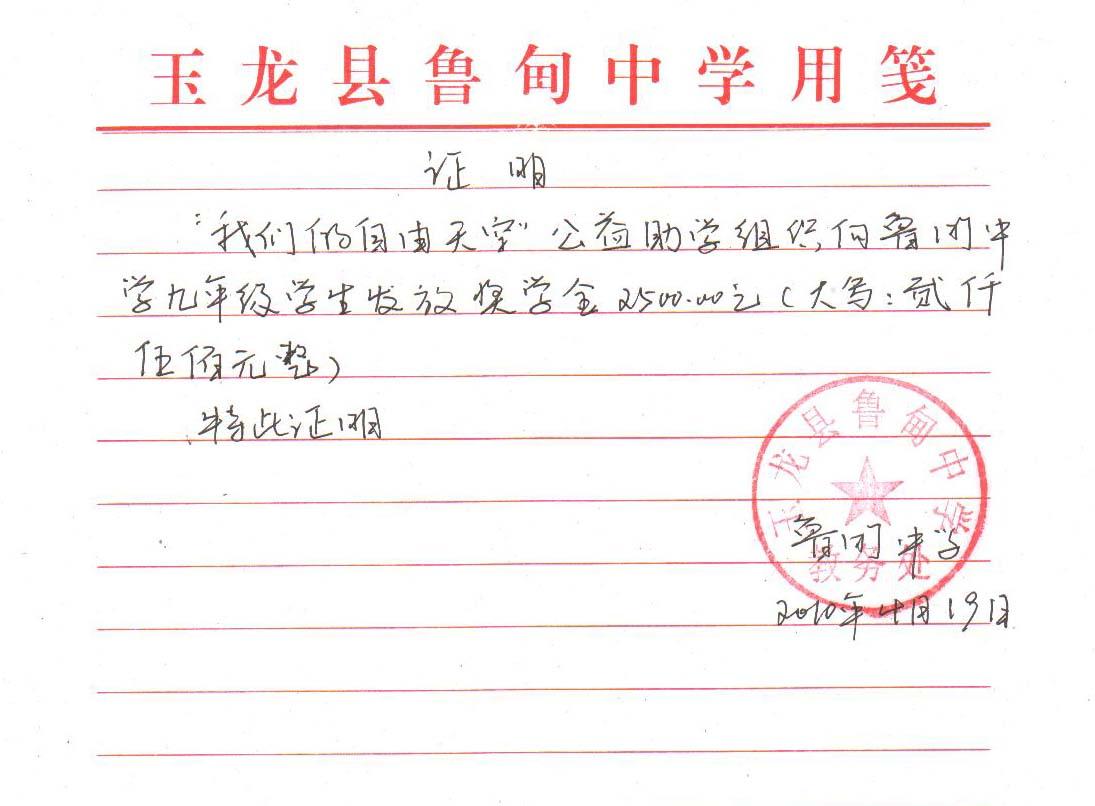 玉龙县鲁甸中学用笺
证明
“我们的自由天空”公益助学组织向鲁甸中
学九年级学生发放奖学金2500.00元（大写：贰仟
伍佰元整）
特此证明
玉龙县鲁甸中学
鲁甸中学
教务处
2010年4月19日